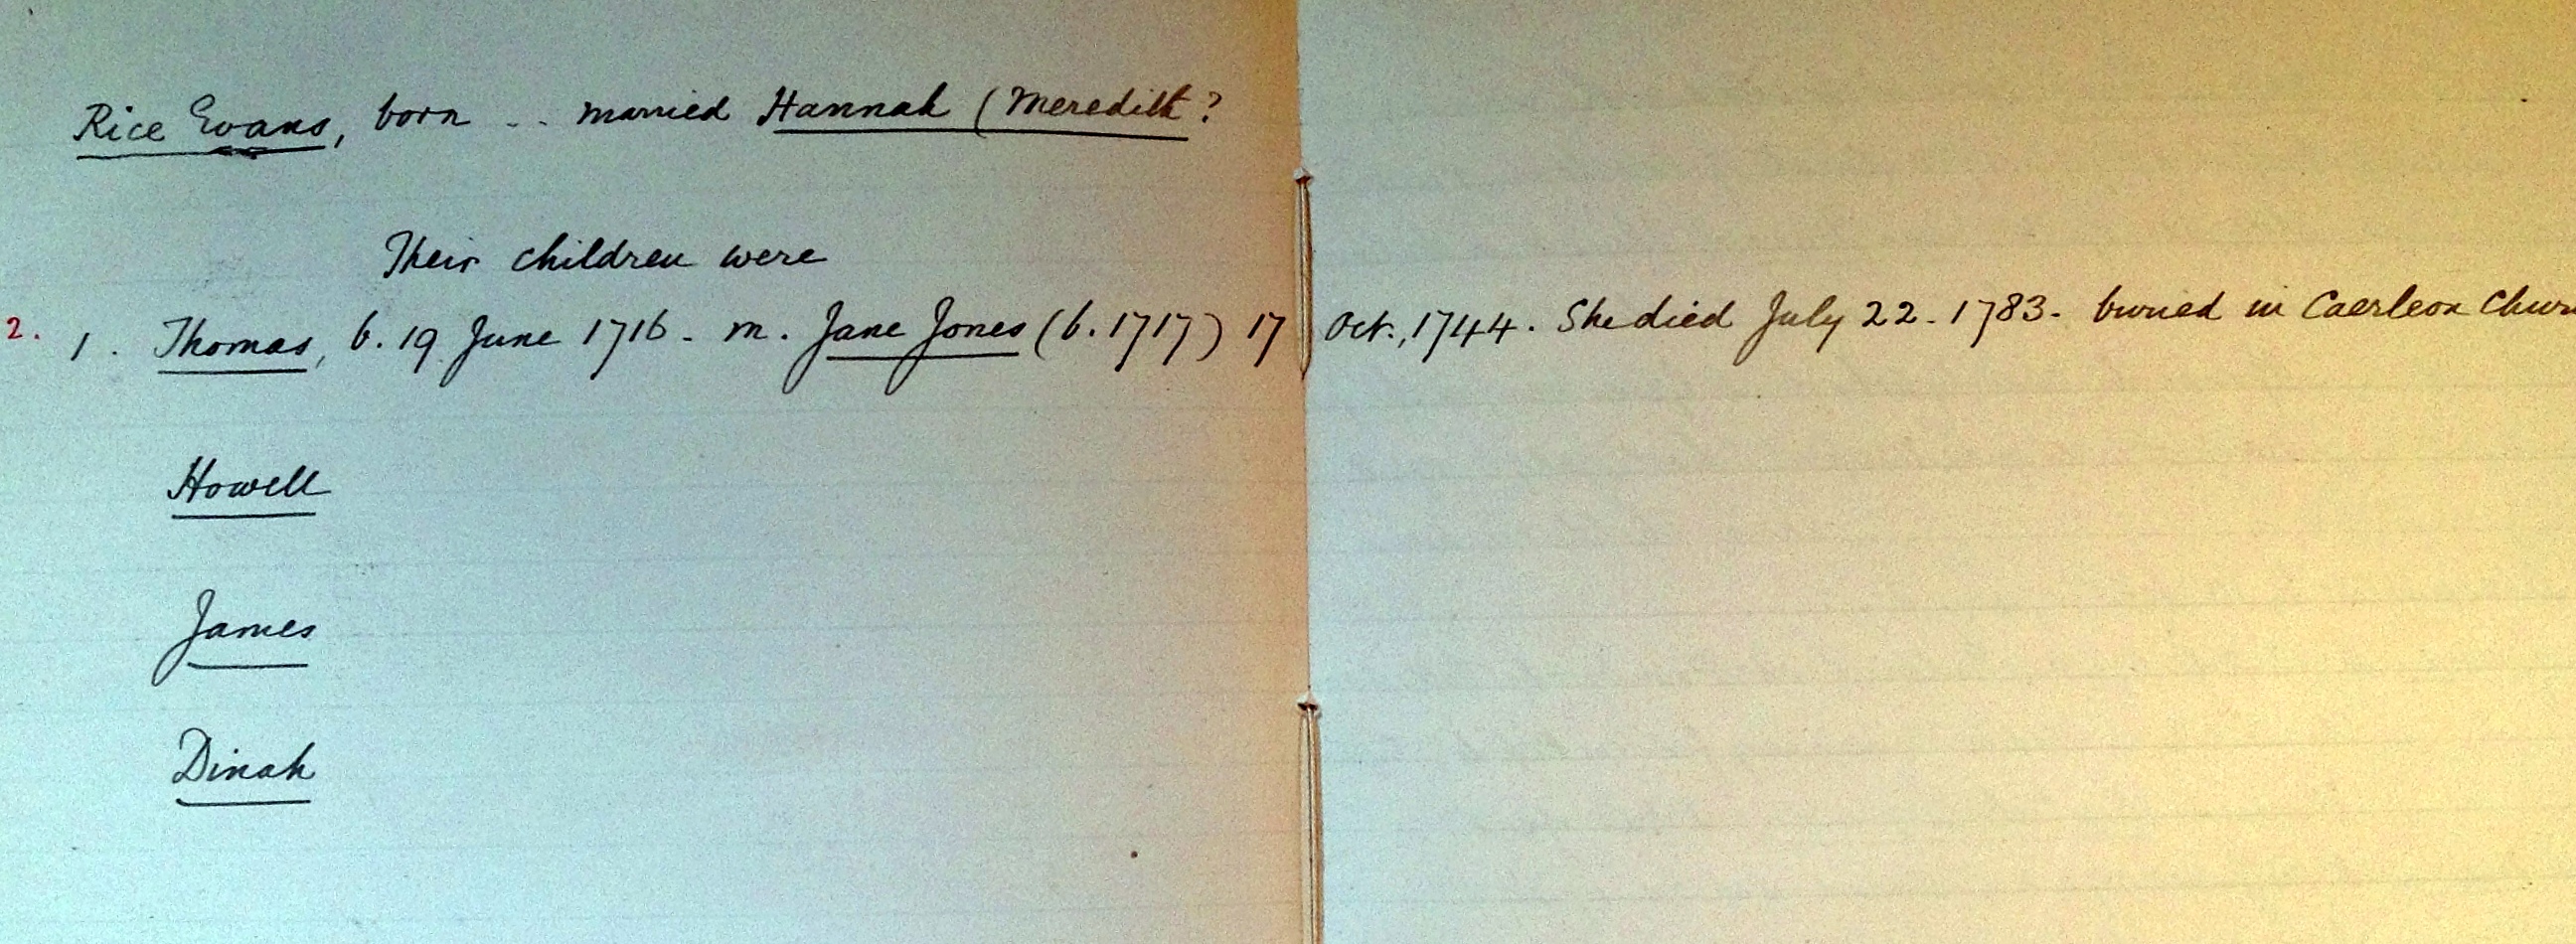 Rice Evans, born .. married Hannah (Meredith?
Their children were
2. 1. Thomas, b. 19 June 1716 - m. Jane Jones (b. 1717) 17 Oct., 1744. She died July 22 - 1783 - buried in Caerleon Chur
Howell
James
Dinah